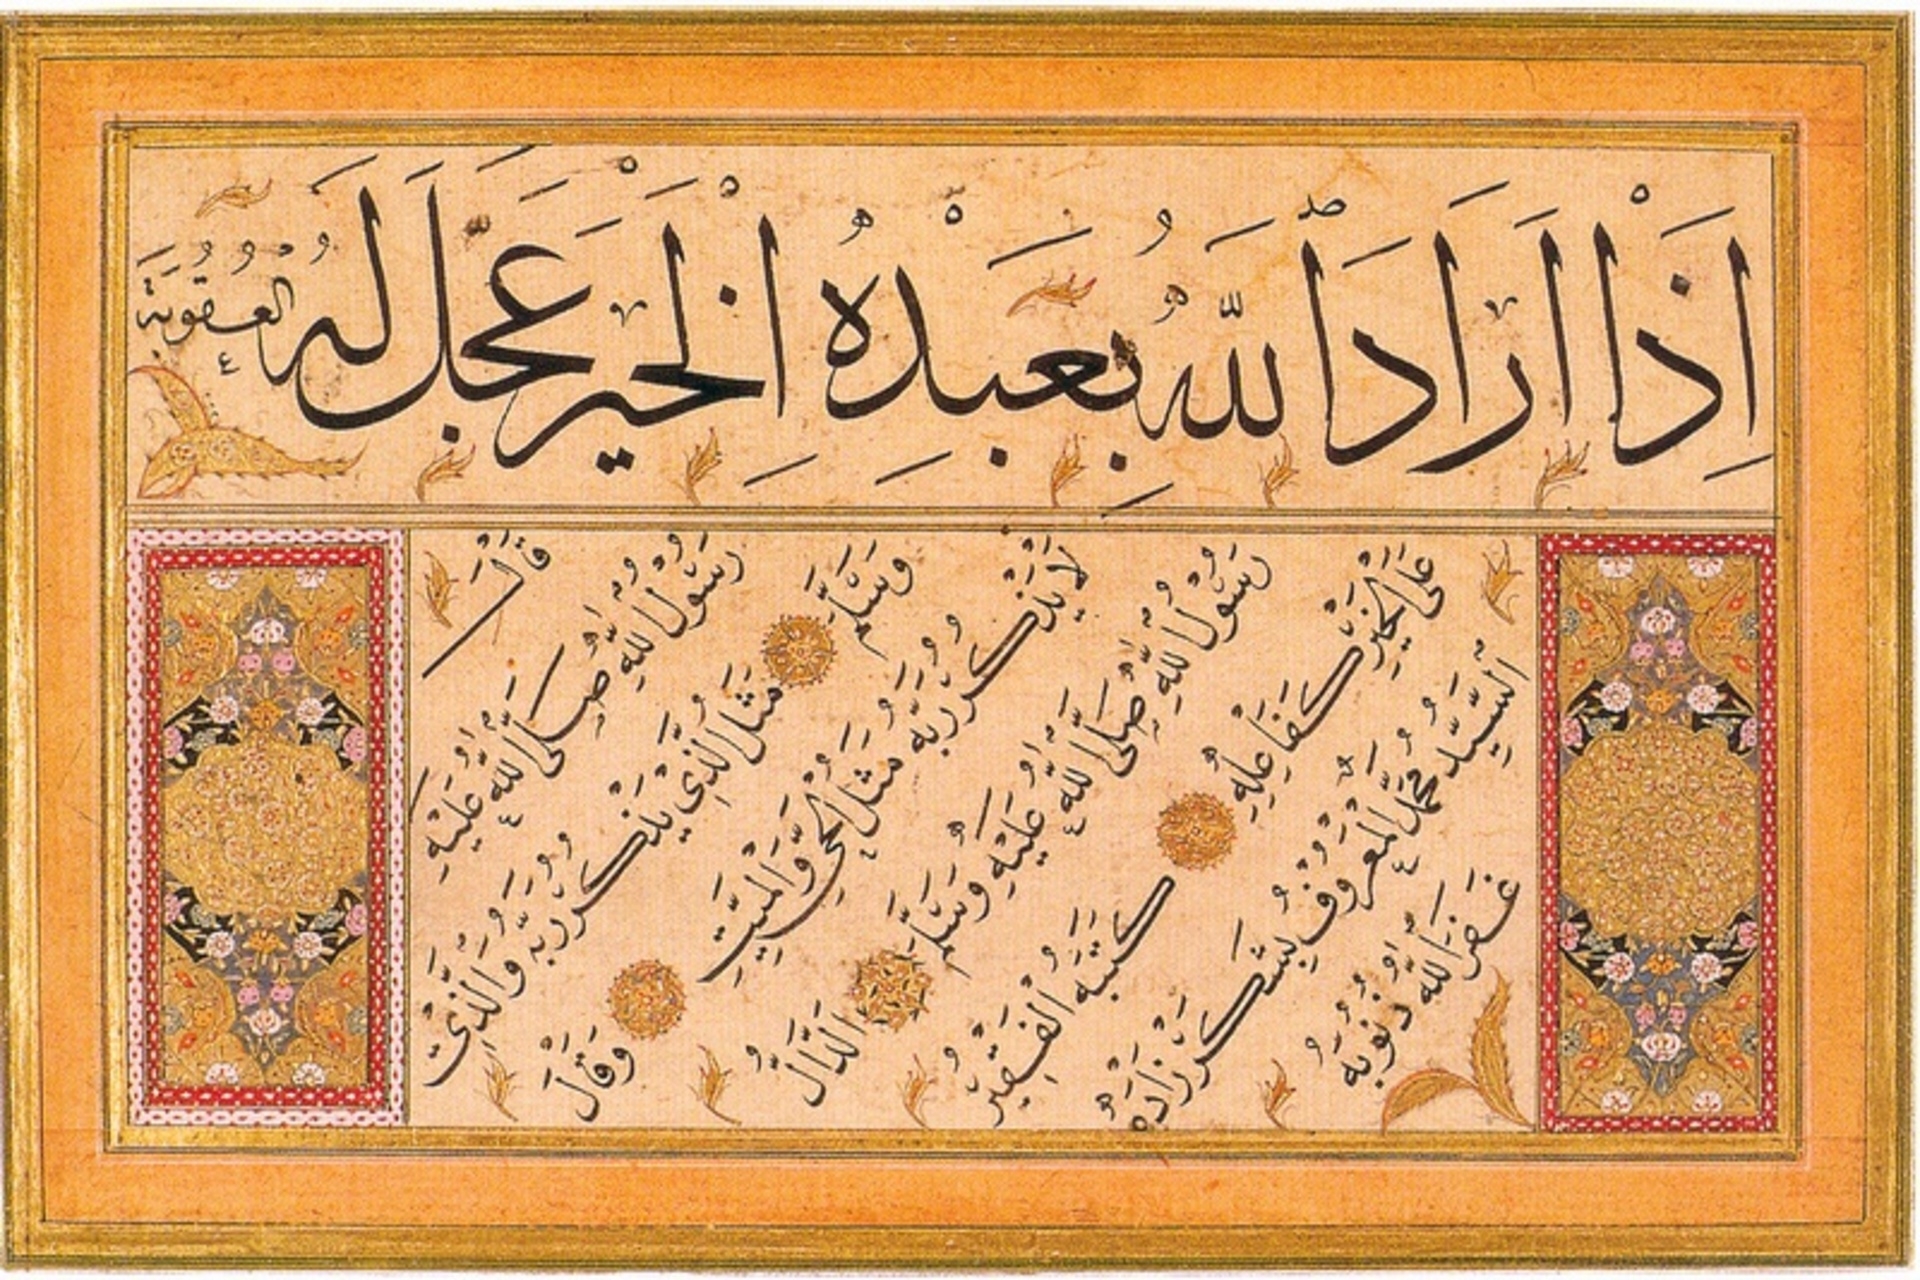 اِذَا اَرَادَ اللّٰهُ بِعَبْدِهِ الْخَيْرَ عَجَّلَ لَهُ الْعُقُوبَةَ
قَالَ
رَسُولُ اللّٰهِ صَلَّى اللّٰهُ عَلَيْهِ
وَسَلَّمَ مَثَلُ الَّذِي يَذْكُرُ رَبَّهُ وَالَّذِي
لَا يَذْكُرُ رَبَّهُ مَثَلُ الْحَيِّ وَالْمَيِّتِ وَقَالَ
رَسُولُ اللّٰهِ صَلَّى اللّٰهُ عَلَيْهِ وَسَلَّمَ الدَّالُّ
عَلَى الْخَيْرِ كَفَاعِلِهِ كَتَبَهُ الْفَقِيرُ
السَّيِّدُ مُحَمَّدُ الْمَعْرُوفُ بِشَكَرْزَادَه
غَفَرَ اللّٰهُ ذُنُوبَهُ